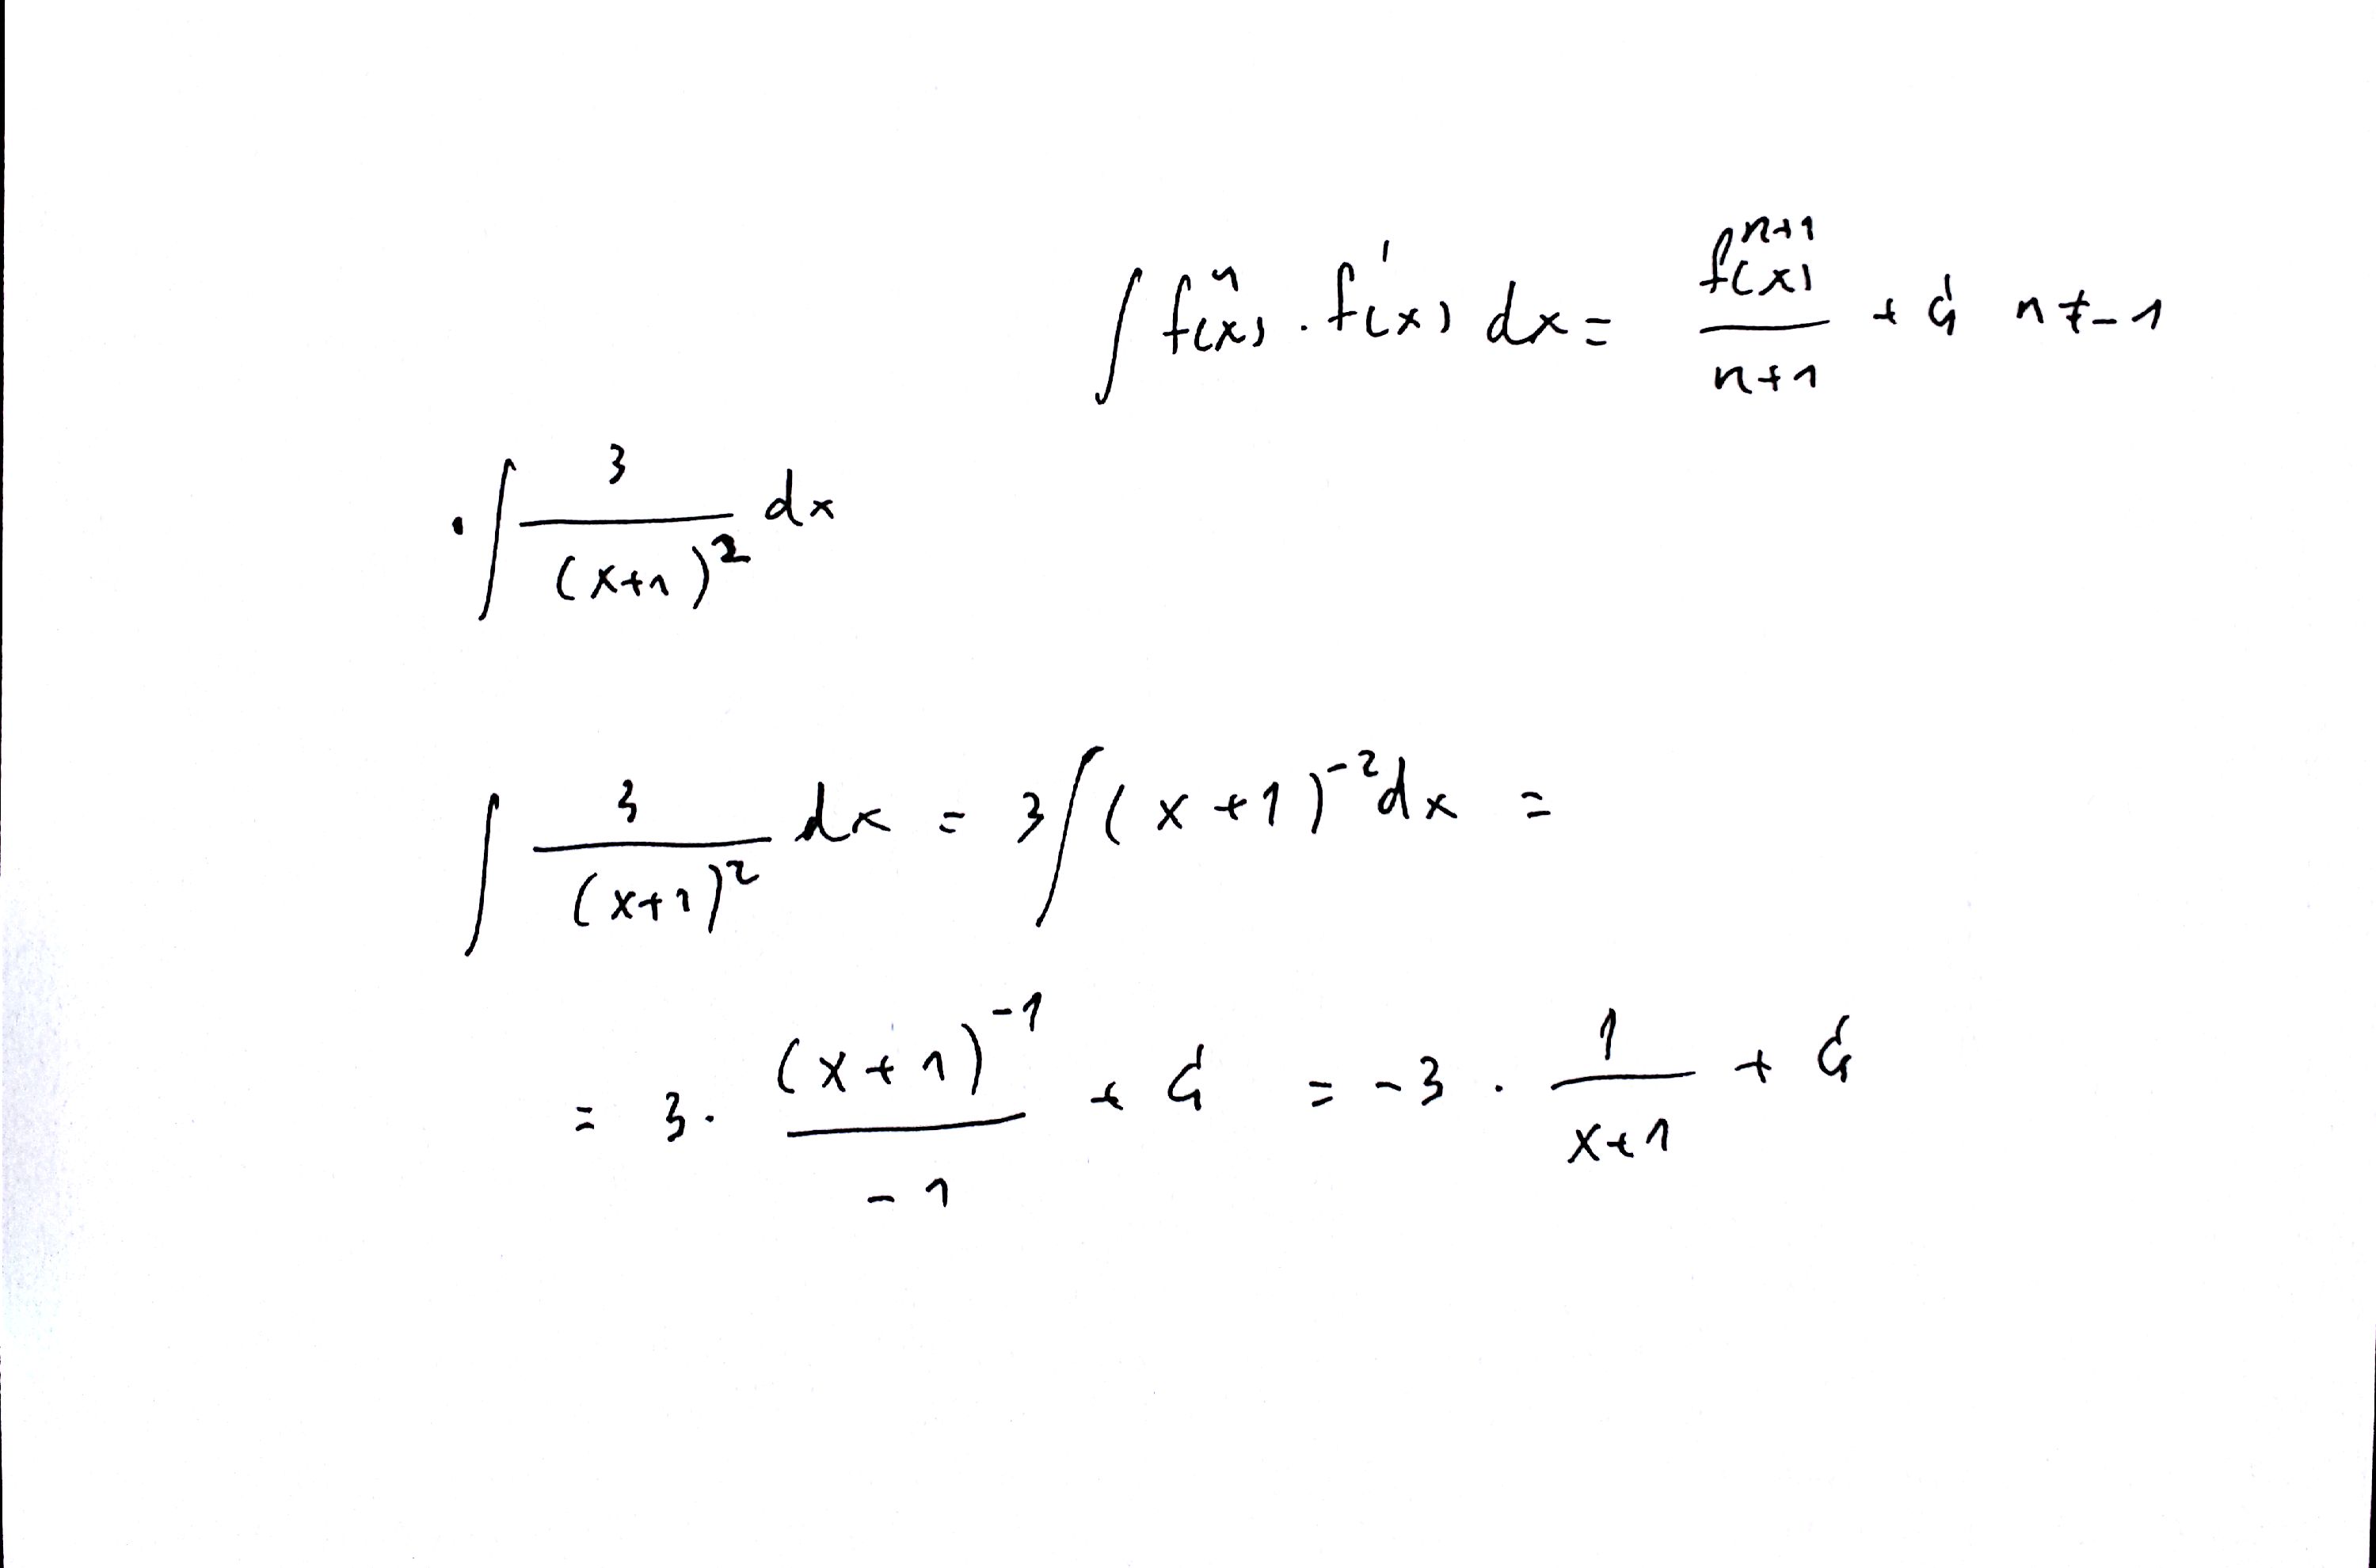 ∫ fⁿ(x) · f'(x) dx = fⁿ⁺¹(x) / (n+1) + C₁ n ≠ -1
· ∫ 3 / (x+1)² dx
∫ 3 / (x+1)² dx = 3 ∫ (x+1)⁻² dx =
= 3 · (x+1)⁻¹ / -1 + C₁ = -3 · 1 / (x+1) + C₁